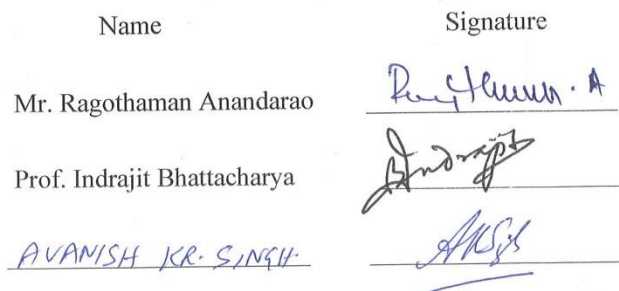 Name Signature
Mr. Ragothaman Anandarao
Prof. Indrajit Bhattacharya Indrajit
AVANISH KR. SINGH.